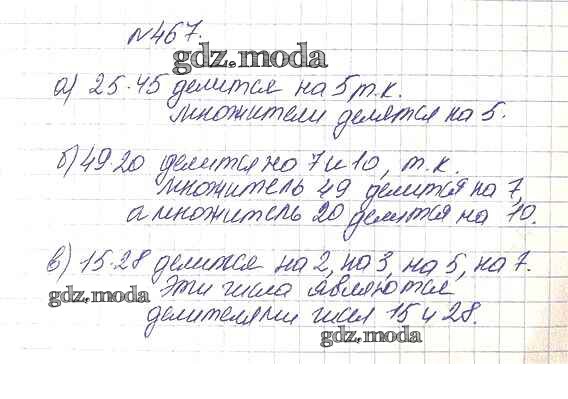 №467.
gdz.moda
а) 25·45 делится на 5 т.к.
множители делятся на 5.
б) 49·20 делится на 7 и 10, т.к.
множитель 49 делится на 7,
а множитель 20 делится на 10.
в) 15·28 делится на 2, на 3, на 5, на 7.
gdz.moda Эти числа являются
делителями чисел 15 и 28.
gdz.moda